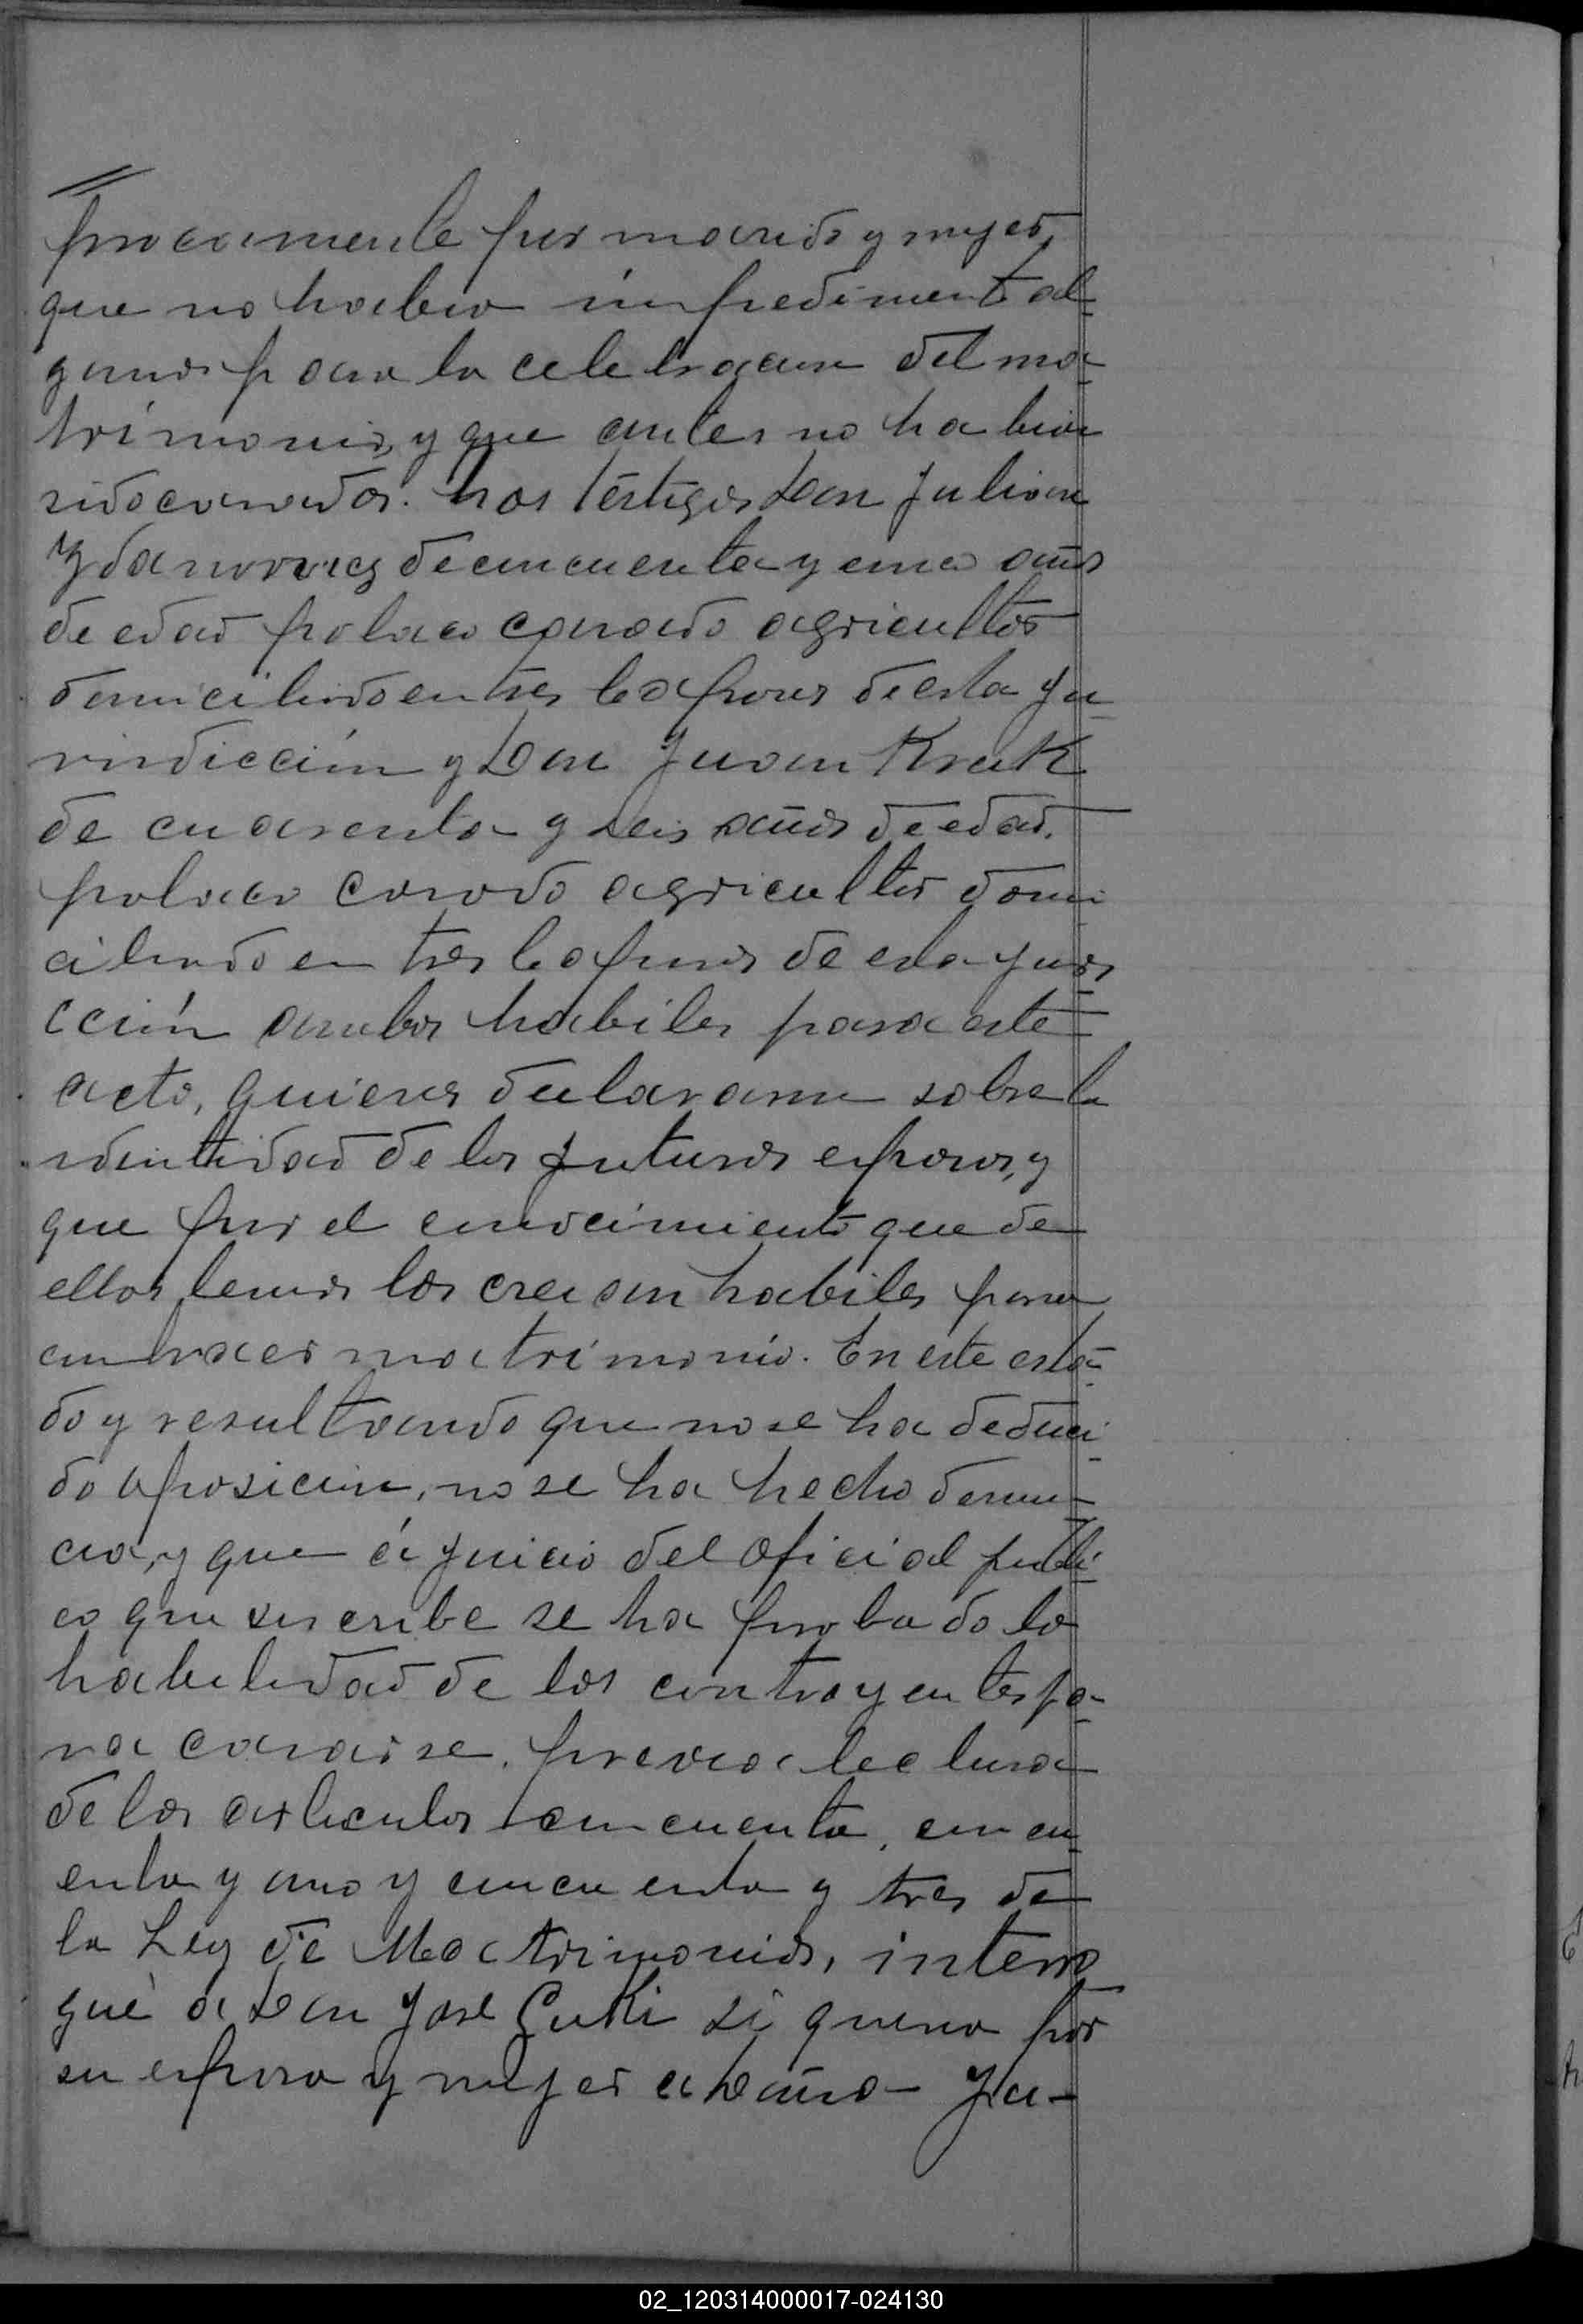 procamente por marido y mujer,
que no habia impedimento al-
guno para la celebracion del ma-
trimonio, y que antes no habian
sido casados. Los testigos Don Julian
de cincuenta y cinco años
de edad polaco casado agricultor
domiciliado en tres leapones de esta ju-
risdicción y Don Juan Kruk
de cuarenta y seis años de edad.
polaco casado agricultor domi
ciliado en tres leapones de esta juris
cción ambos habiles para este
acto, quienes declararon sobre la
identidad de los futuros esposos, y
que por el conocimiento que de
ellos tenian los creian habiles para
contraer matrimonio. En este esta-
do y resultando que no se ha deduci-
do oposicion, no se ha hecho denun-
cia, y que á juicio del oficial publi-
co que suscribe se ha probado la
habilidad de los contrayentes pa-
ra casarse, previa lectura
de los articulos cincuenta, cincu-
enta y uno y cincuenta y tres de
la Ley de Matrimonio, interro
gué a Don José Guki si queria por
su esposa y mujer a Doña Ju-
02_120314000017-024130